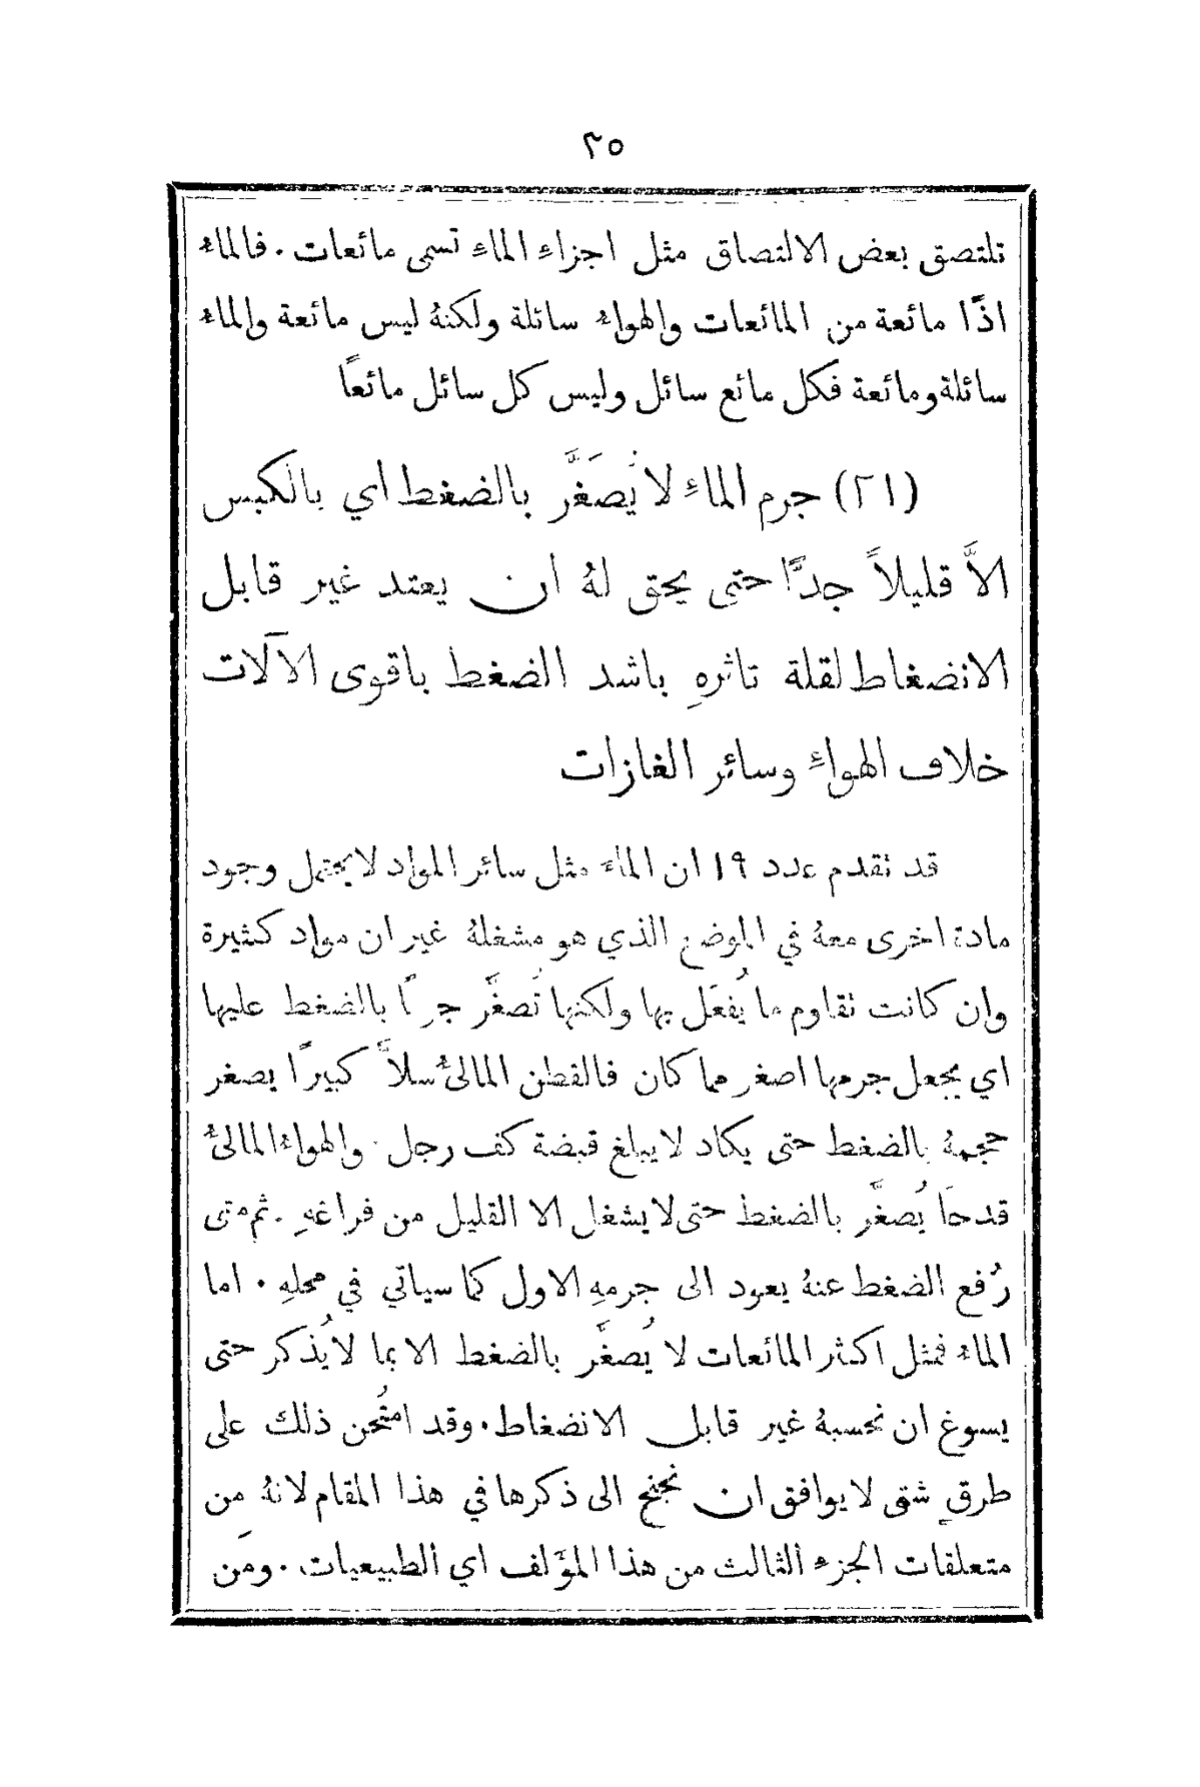 ٢٥
تلتصق بعض الالتصاق مثل اجزاءِ الماءِ تسمى مائعات. فالماءُ
اذًا مائعة من المائعات والهواءُ سائلة ولكنهُ ليس مائعة والماءُ
سائلة ومائعة فكل مائع سائل وليس كل سائل مائعاً
(٢١) جرم الماءِ لا يُصَغَّر بالضغط اي بالكبس
الاَّ قليلاً جدًّا حتى يحق لهُ ان يعتد غير قابل
الانضغاط لقلة تاثرهِ باشد الضغط باقوى الآلات
خلاف الهواءِ وسائر الغازات
قد تقدم عدد ١٩ ان الماءَ مثل سائر المواد لا يحتمل وجود
مادة اخرى معهُ في الموضع الذي هو مشغلهُ غير ان مواد كثيرة
وان كانت تقاوم ما يُفعَل بها ولكنها تُصغَّر جرمًا بالضغط عليها
اي يجعل جرمها اصغر مما كان فالقطن المالئُ سلاًّ كبيرًا يصغر
حجمهُ بالضغط حتى يكاد لا يبلغ قبضة كف رجل. والهواءُ المالئُ
قدحًا يُصغَّر بالضغط حتى لا يشغل الا القليل من فراغهِ. ثم متى
رُفع الضغط عنهُ يعود الى جرمهِ الاول كما سياتي في محلهِ. اما
الماءُ فمثل اكثر المائعات لا يُصغَّر بالضغط الا بما لا يُذكر حتى
يسوغ ان نحسبهُ غير قابل الانضغاط. وقد امتُحن ذلك على
طرقٍ شتى لا يوافق ان نجنح الى ذكرها في هذا المقام لانهُ من
متعلقات الجزءِ الثالث من هذا المؤَلف اي الطبيعيات. ومَن